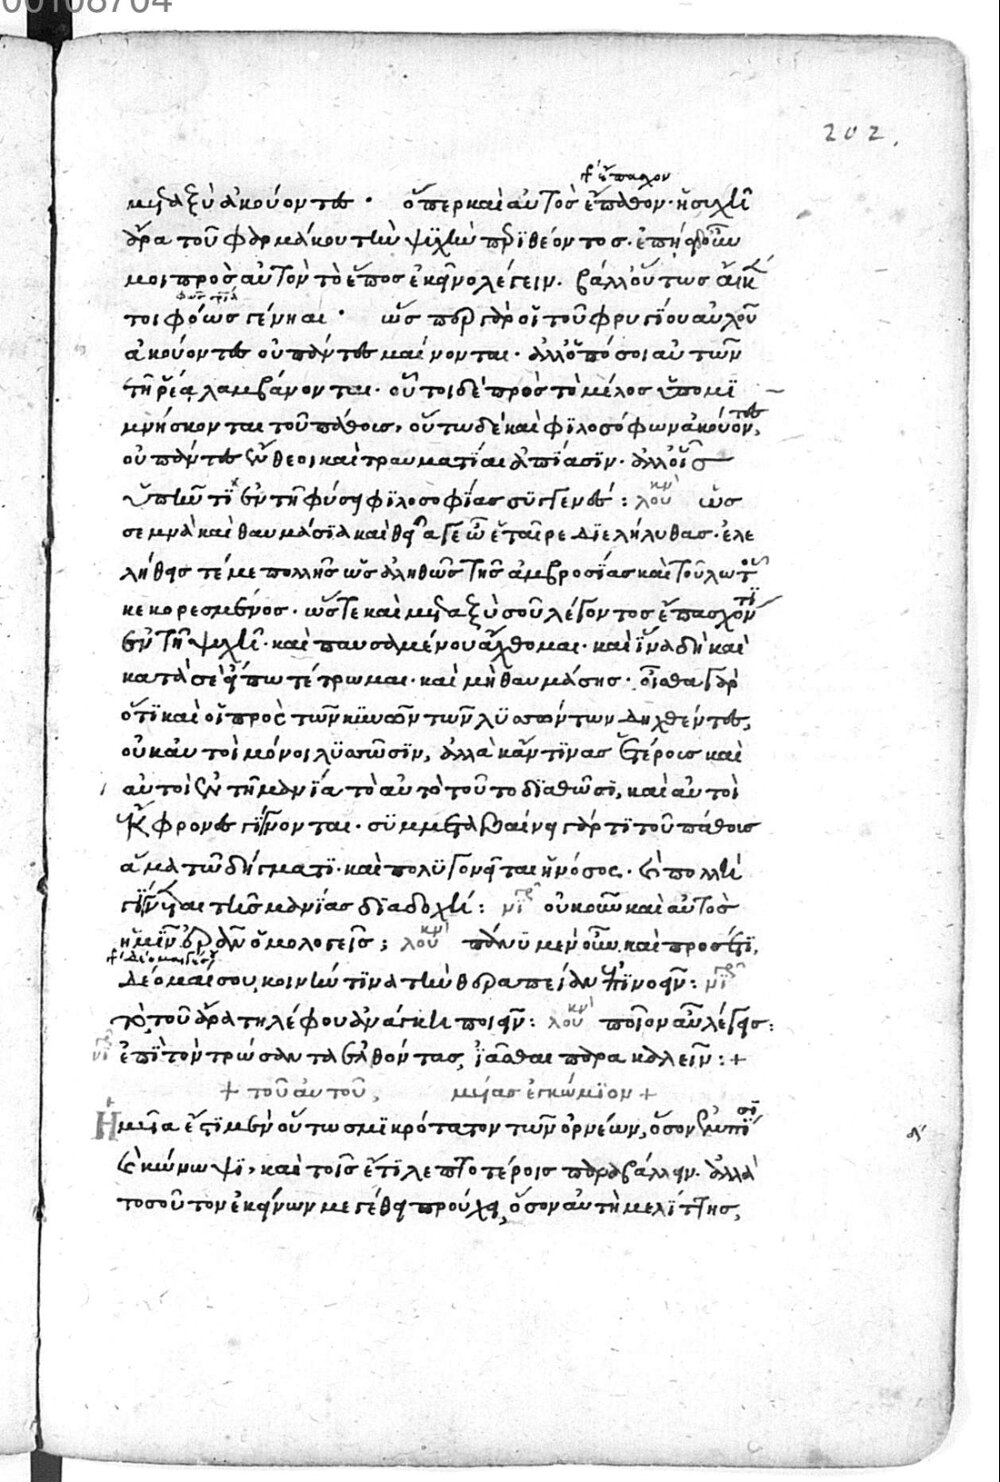 202.
ὕπασχον
μεταξὺ ἀκούοντες · ὅπερ καὶ αὐτὸς ἔπαθον · ἡσυχῆ
ἄρα τοῦ φαρμάκου τὴν ψυχὴν περιθέοντος · ἐπῄει γοῦν
μοι πρὸς αὐτὸν τὸ ἔπος ἐκεῖνο λέγειν · βάλλ' οὕτως αἴκέν
τοι φόως γένηαι · ὥσπερ γὰρ οἱ τοῦ φρυγίου αὐλοῦ
ἀκούοντες οὐ πάντες μαίνονται · ἀλλ' ὁπόσοι αὐτῶν
τῇ ῥέᾳ λαμβάνονται · οὗτοι δὲ πρὸς τὸ μέλος ὑπομι
μνήσκονται τοῦ πάθους, οὕτω δὲ καὶ φιλοσόφων ἀκούοντες,
οὐ πάντες ἔνθεοι καὶ τραυματίαι ἀπίασιν · ἀλλ' οἷς
ὑπῆν τι ἐν τῇ φύσει φιλοσοφίας συγγενές : λουκι ὡς
σεμνὰ καὶ θαυμάσια καὶ θεῖά γε ὦ ἑταῖρε διελήλυθας · ἐλε
λήθεις τέ με πολλῆς ὡς ἀληθῶς τῆς ἀμβροσίας καὶ τοῦ λωτοῦ
κεκορεσμένος · ὥστε καὶ μεταξὺ σοῦ λέγοντος ἔπασχόν τι
ἐν τῇ ψυχῇ · καὶ παυσαμένου ἄχθομαι · καὶ ἵνα δὴ καὶ
κατὰ σὲ εἴπω τέτρωμαι · καὶ μὴ θαυμάσῃς · οἶσθα γὰρ
ὅτι καὶ οἱ πρὸς τῶν κυνῶν τῶν λυσσώντων δηχθέντες,
οὐκ αὐτοὶ μόνοι λυσσῶσιν, ἀλλὰ κἄν τινας ἑτέροις καὶ
αὐτοὶ ἐν τῇ μανίᾳ τὸ αὐτὸ τοῦτο διαθῶσι, καὶ αὐτοὶ
ἔκφρονες γίγνονται · συμμεταβαίνει γάρ τι τοῦ πάθους
ἅμα τῷ δήγματι · καὶ πολυγονεῖται ἡ νόσος · καὶ πολλὴ
γίγνεται τῆς μανίας διαδοχή : νιγρ οὐκοῦν καὶ αὐτὸς
ἡμῖν ὁρᾶν ὁμολογεῖς ; λουκι πάνυ μὲν οὖν, καὶ προσέτι,
δέομαί σου, κοινήν τινα τὴν θεραπείαν ἐπινοεῖν : νιγρ
τὸ τοῦ ἄρα τηλέφου ἀνάγκη ποιεῖν : λουκι ποῖον αὖ λέγεις :
νιγρ ἐπὶ τὸν τρώσαντα ἐλθόντας, ἰᾶσθαι παρακαλεῖν : +
+ τοῦ αὐτοῦ, μυίας ἐγκώμιον +
Ἡ μυῖα ἔστι μὲν οὔτω σμικρότατον τῶν ὀρνέων, ὅσον ἐμπίσι
καὶ κώνωψι, καὶ τοῖς ἔτι λεπτοτέροις παραβάλλειν · ἀλλὰ
τοσοῦτον ἐκείνων μεγέθει προύχει, ὅσον αὐτὴ μελίττης,